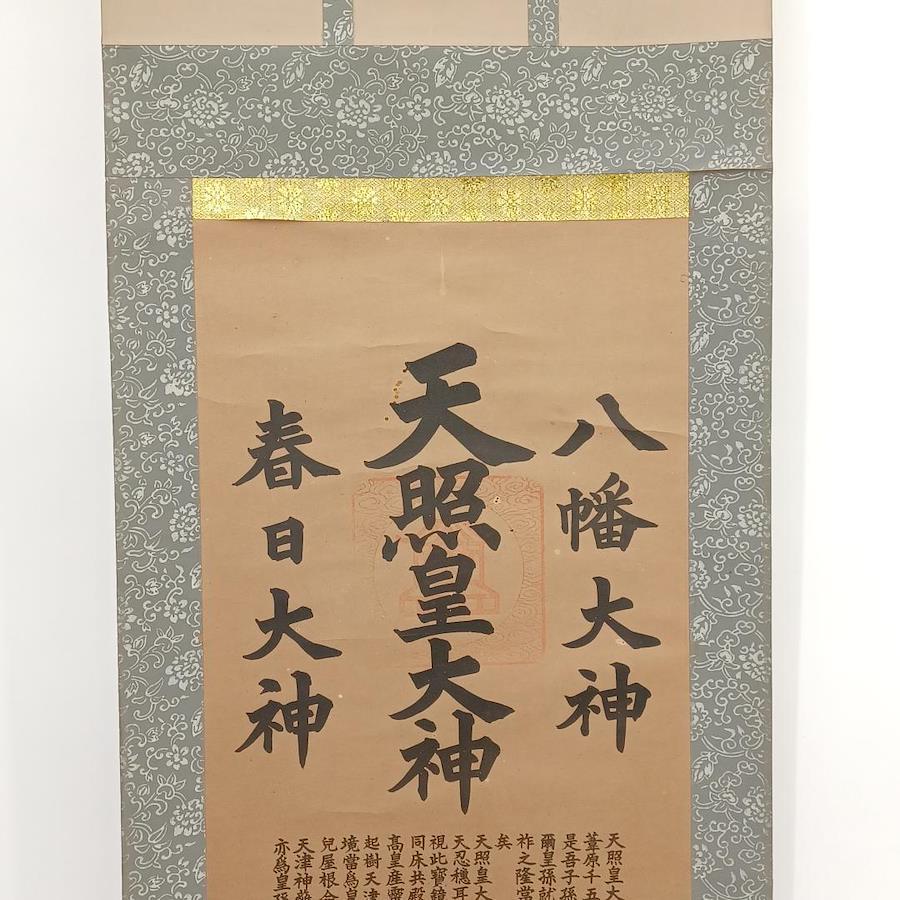 八幡大神
天照皇大神
春日大神
天照皇大
葦原千五
是吾子孫
爾皇孫就
祚之隆當
矣
天照皇大
天忍穗耳
視此寶鏡
同床共殿
高皇産靈
起樹天津
境當爲皇
兒屋根命
天津神籬
亦爲皇孫